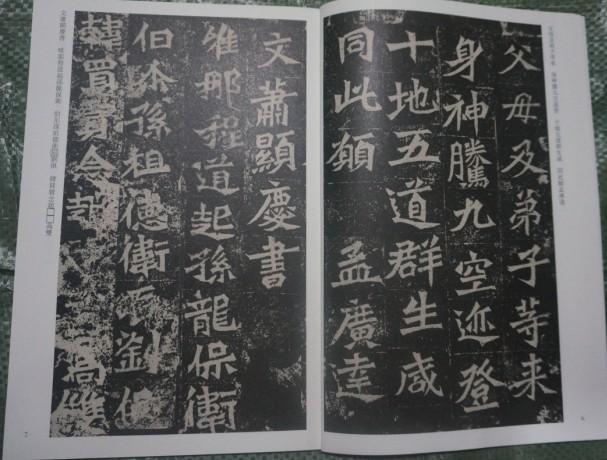 父母及弟子等来身神騰九空迹登十地五道群生咸同此願孟廣達
父母及弟子等来
身神騰九空迹登
十地五道群生咸
同此願 孟廣達
6
文蕭顯慶書
維那程道起孫龍保衛
伯孫祖德衛劉
韓買念高雙
文蕭顯慶書
程道起孫龍保衛
高雙
7